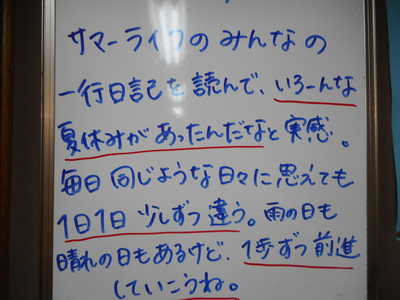 サマーライフのみんなの
一行日記を読んで、いろーんな
夏休みがあったんだなと実感。
毎日同じような日々に思えても
1日1日少しずつ違う。雨の日も
晴れの日もあるけど、1歩ずつ前進
していこうね。